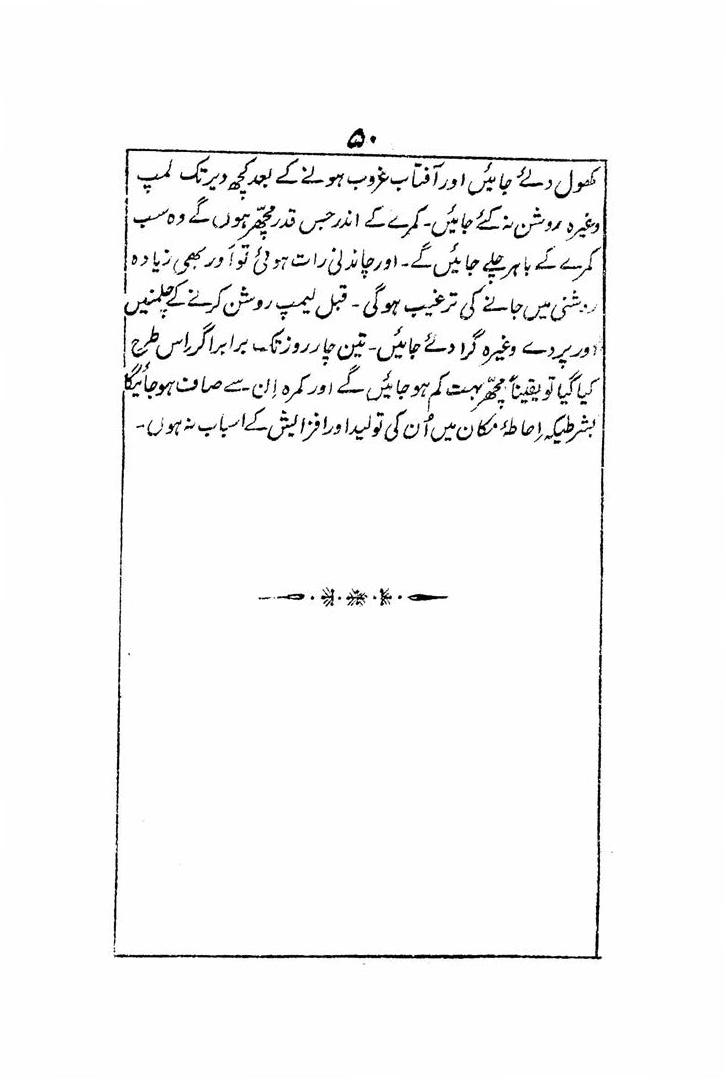 ۵۰
کھول دئے جائیں اور آفتاب غروب ہونے کے بعد کچھ دیر تک لمپ
وغیرہ روشن نہ کئے جائیں۔ کمرے کے اندر جس قدر مچھّر ہوں گے وہ سب
کمرے کے باہر چلے جائیں گے۔ اور چاندنی رات ہوئی تو اَور بھی زیادہ
روشنی میں جانے کی ترغیب ہوگی۔ قبل لیمپ روشن کرنے کے چلمنیں
اور پردے وغیرہ گرا دئے جائیں۔ تین چار روز تک برابر اگر اِس طرح
کیا گیا تو یقیناً مچھّر بہت کم ہو جائیں گے اور کمرہ اِن سے صاف ہو جائیگا
بشرطیکہ اِحاطۂ مکان میں اُن کی تولید اور افزایش کے اسباب نہ ہوں۔